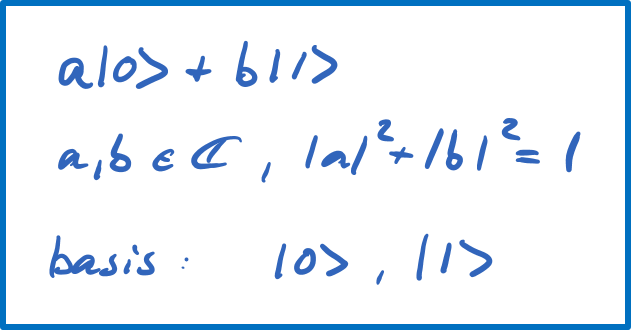 a|0> + b|1>
a,b ∈ ℂ, |a|² + |b|² = 1
basis: |0>, |1>